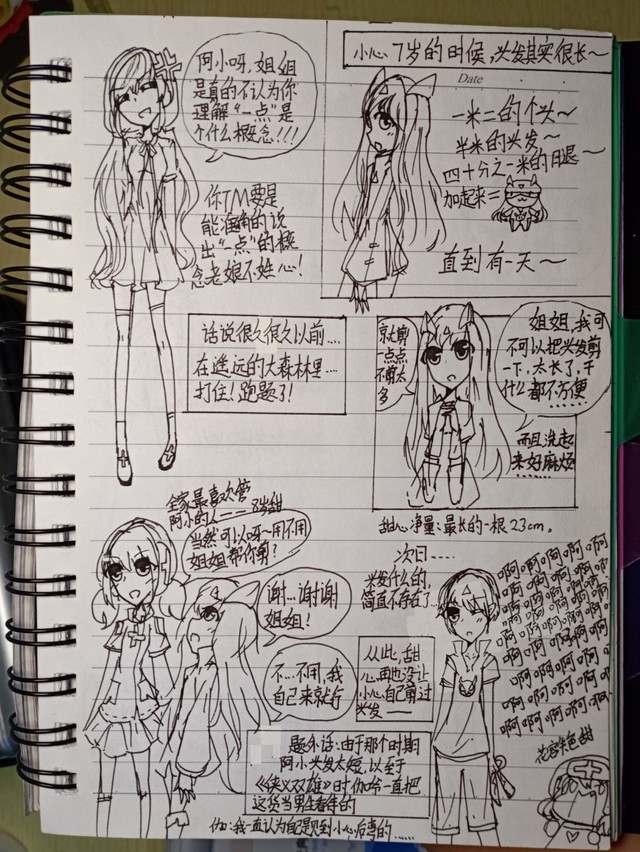 阿小呀,姐姐
是真的不认为你
理解“一点”是
个什么概念!!!
你TM要是
能准确的说
出“一点”的概
念老娘不姓心!
小心7岁的时候,头发其实很长~
Date
一米二的个头~
半米的头发~
四十分之一米的日退~
加起来=
直到有一天~
话说很久很久以前....
在遥远的大森林里....
打住!跑题了!
就剪
一点点
不剪太
多
姐姐,我可
不可以把头发剪
一下,太长了,干
什么都不方便
......
而且洗起
来好麻烦
......
甜心净量:最长的一根23cm。
全家最喜欢管
阿小的人——8岁甜
当然可以呀~用不用
姐姐帮你剪?
谢...谢谢
姐姐!
不...不用,我
自己来就行
次日....
头发什么的,
简直不存在了...
从此,甜
心再也没让
小心自己剪过
头发——
啊啊啊啊啊
啊啊啊啊啊
啊啊啊啊啊
啊啊啊啊啊
啊啊啊啊啊
啊啊啊啊啊
啊啊啊啊啊
啊啊啊啊啊
花容失色甜
题外话:由于那个时期
阿小头发太短,以至于
《侠义双雄》时伽吟一直把
这货当男生看待的
伽:我一直认为自己是见到小心后弯的......